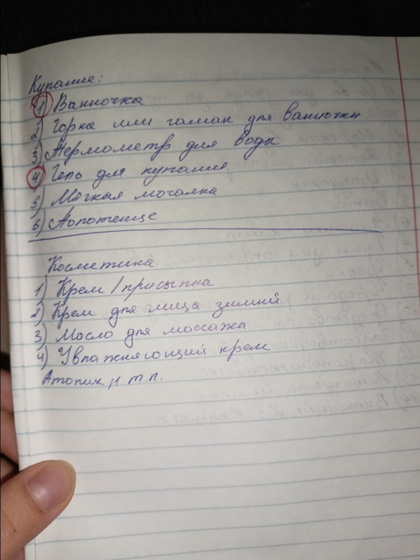 Купание:
1) Ванночка
2) Горка или гамак для ванночки
3) Термометр для воды
4) Гель для купания
5) Мягкая мочалка
6) Полотенце
Косметика:
1) Крем/присыпка
2) Крем для лица зимний
3) Масло для массажа
4) Увлажняющий крем
Атопик и т.п.